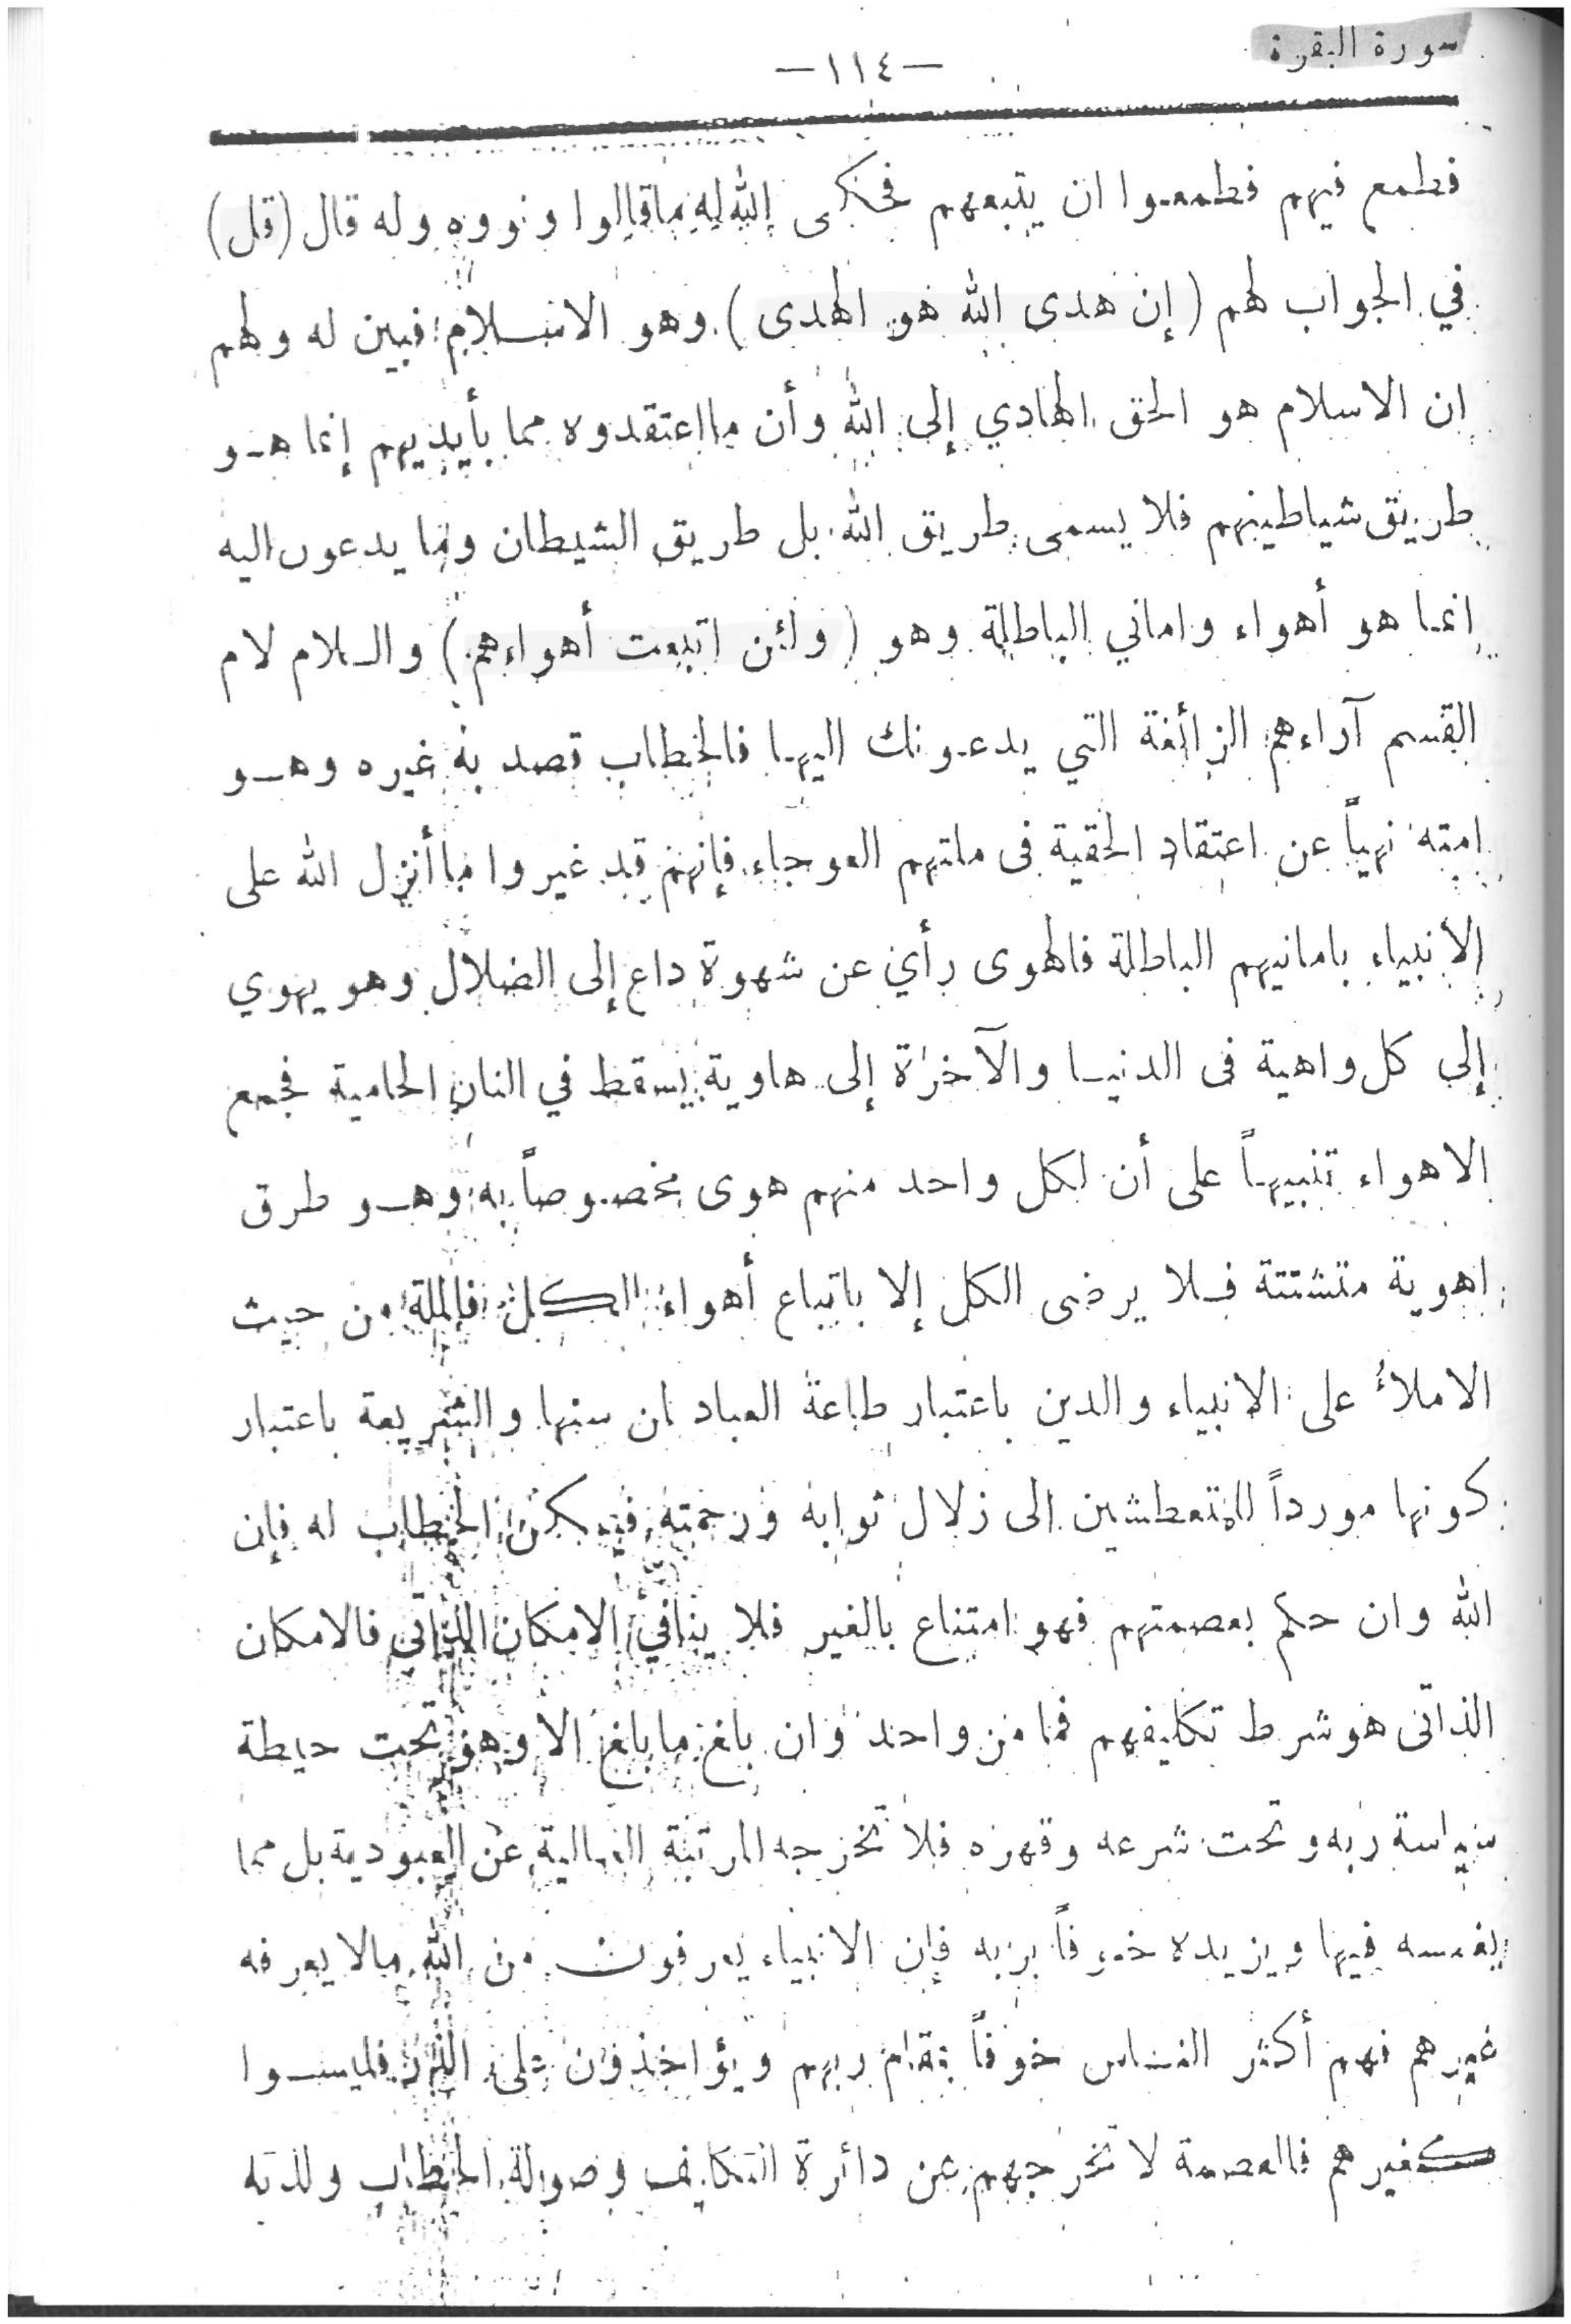 سورة البقرة
—١١٤—
فطمع فيهم فطمعوا ان يتبعهم فحكى الله له ماقالوا ونووه وله قال (قل)
في الجواب لهم (إن هدى الله هو الهدى) وهو الاسلام فبين له ولهم
ان الاسلام هو الحق الهادي إلى الله وأن مااعتقدوه مما بأيديهم إنما هو
طريق شياطينهم فلا يسمى طريق الله بل طريق الشيطان وما يدعون اليه
انما هو أهواء واماني الباطلة وهو (ولئن اتبعت أهواءهم) والسلام لام
القسم آراءهم الزائغة التي يدعونك اليها فالخطاب قصد به غيره وهو
امته نهياً عن اعتقاد الحقية فى ملتهم العوجاء فإنهم قد غيروا ما أنزل الله على
الانبياء بامانيهم الباطلة فالهوى رأي عن شهوة داع إلى الضلال وهو يهوي
إلى كل واهية فى الدنيا والآخرة إلى هاوية يسقط في النار الحامية فجمع
الاهواء تنبيهاً على أن لكل واحد منهم هوى مخصوصاً به وهو طرق
اهوية متشتتة فلا يرضى الكل إلا باتباع أهواء الكل فالملة من حيث
الاملاء على الانبياء والدين باعتبار طاعة العباد لمن سنها والشريعة باعتبار
كونها مورداً للمتعطشين الى زلال ثوابه ورحمته فيمكن الخطاب له فإن
الله وان حكم بعصمتهم فهو امتناع بالغير فلا ينافي الامكان الذاتى فالامكان
الذاتى هو شرط تكليفهم فما من واحد وان بلغ ما بلغ الا وهو تحت حيطة
سياسة ربه وتحت شرعه وقهره فلا تخرجه المرتبة العالية عن العبودية بل مما
يغمسه فيها ويزيده خوفاً بربه فإن الانبياء يعرفون من الله مالا يعرفه
غيرهم فهم أكثر الناس خوفاً بمقام ربهم ويؤاخذون على الذر فليسوا
كغيرهم فالعصمة لا تخرجهم عن دائرة التكليف وصولة الخطاب ولذته